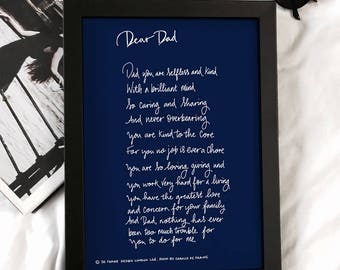 Dear Dad
Dad you are selfless and kind
With a brilliant mind
So caring and sharing
And never overbearing
You are kind to the core
For you no job is ever a chore
You are so loving, giving and
you work very hard for a living
You have the greatest love
and concern for your family
And Dad, nothing has ever
been too much trouble for
you to do for me